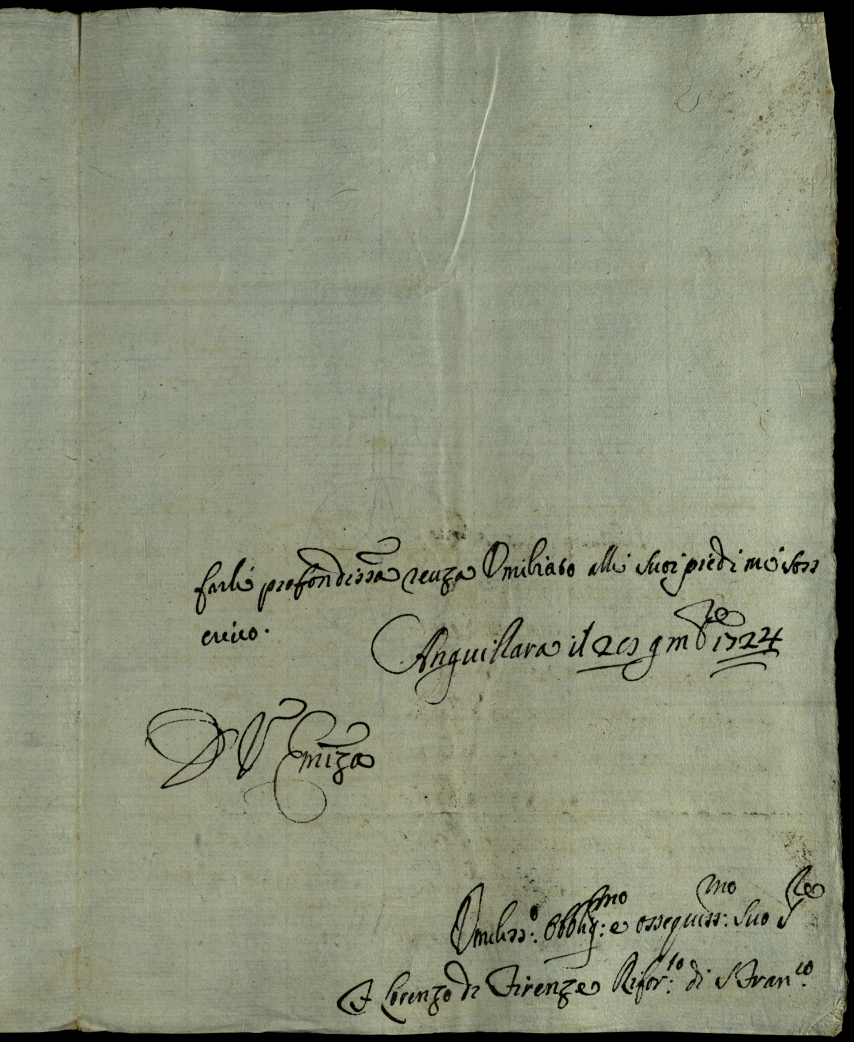 farle profondissa reuza Umiliato alli suoi piedi mi sotts
crivo.
Anguillara il 29 9mbre 1724
D V Emiza
Umiliss:o Obblig:mo e ossequiss:mo suo Sre
F Lorenzo di Firenze Rifor:to di S Fran:co